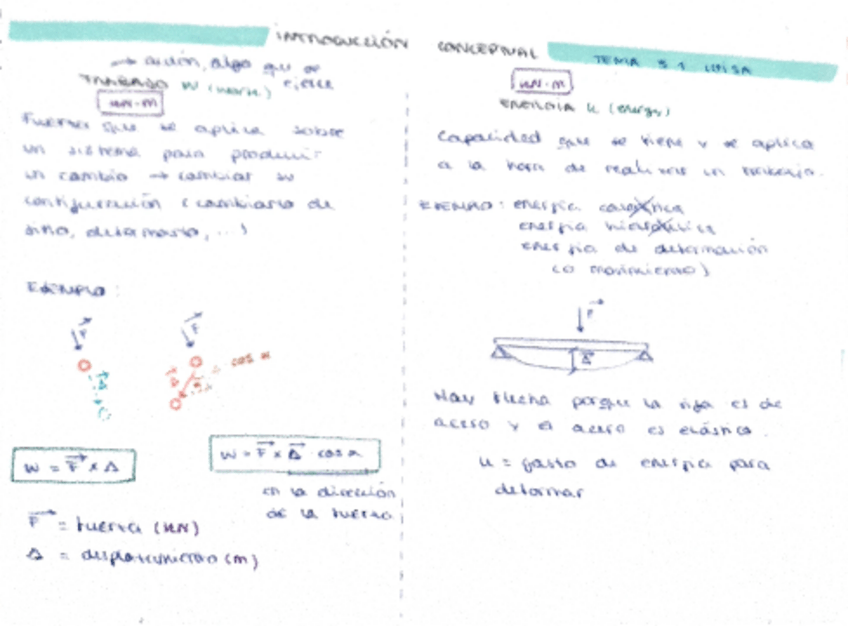 INTRODUCCIÓN CONCEPTUAL
TEMA 5.1 LUISA
→ acción, algo que se ejerce
TRABAJO W (work)
KN·m
Fuerza que se aplica sobre
un sistema para producir
un cambio → cambiar su
configuración (cambiarlo de
sitio, deformarlo, ...)
EJEMPLO:
F
Δ
F
Δ
cos α
W = F x Δ
W = F x Δ · cos α
en la dirección
de la fuerza
F = fuerza (KN)
Δ = desplazamiento (m)
KN·m
ENERGIA U (energy)
Capacidad que se tiene y se aplica
a la hora de realizar un trabajo.
EJEMPLO: energía
energía
energía de deformación
(o movimiento)
F
Δ
Hay flecha porque la viga es de
acero y el acero es elástico.
U = gasto de energía para
deformar